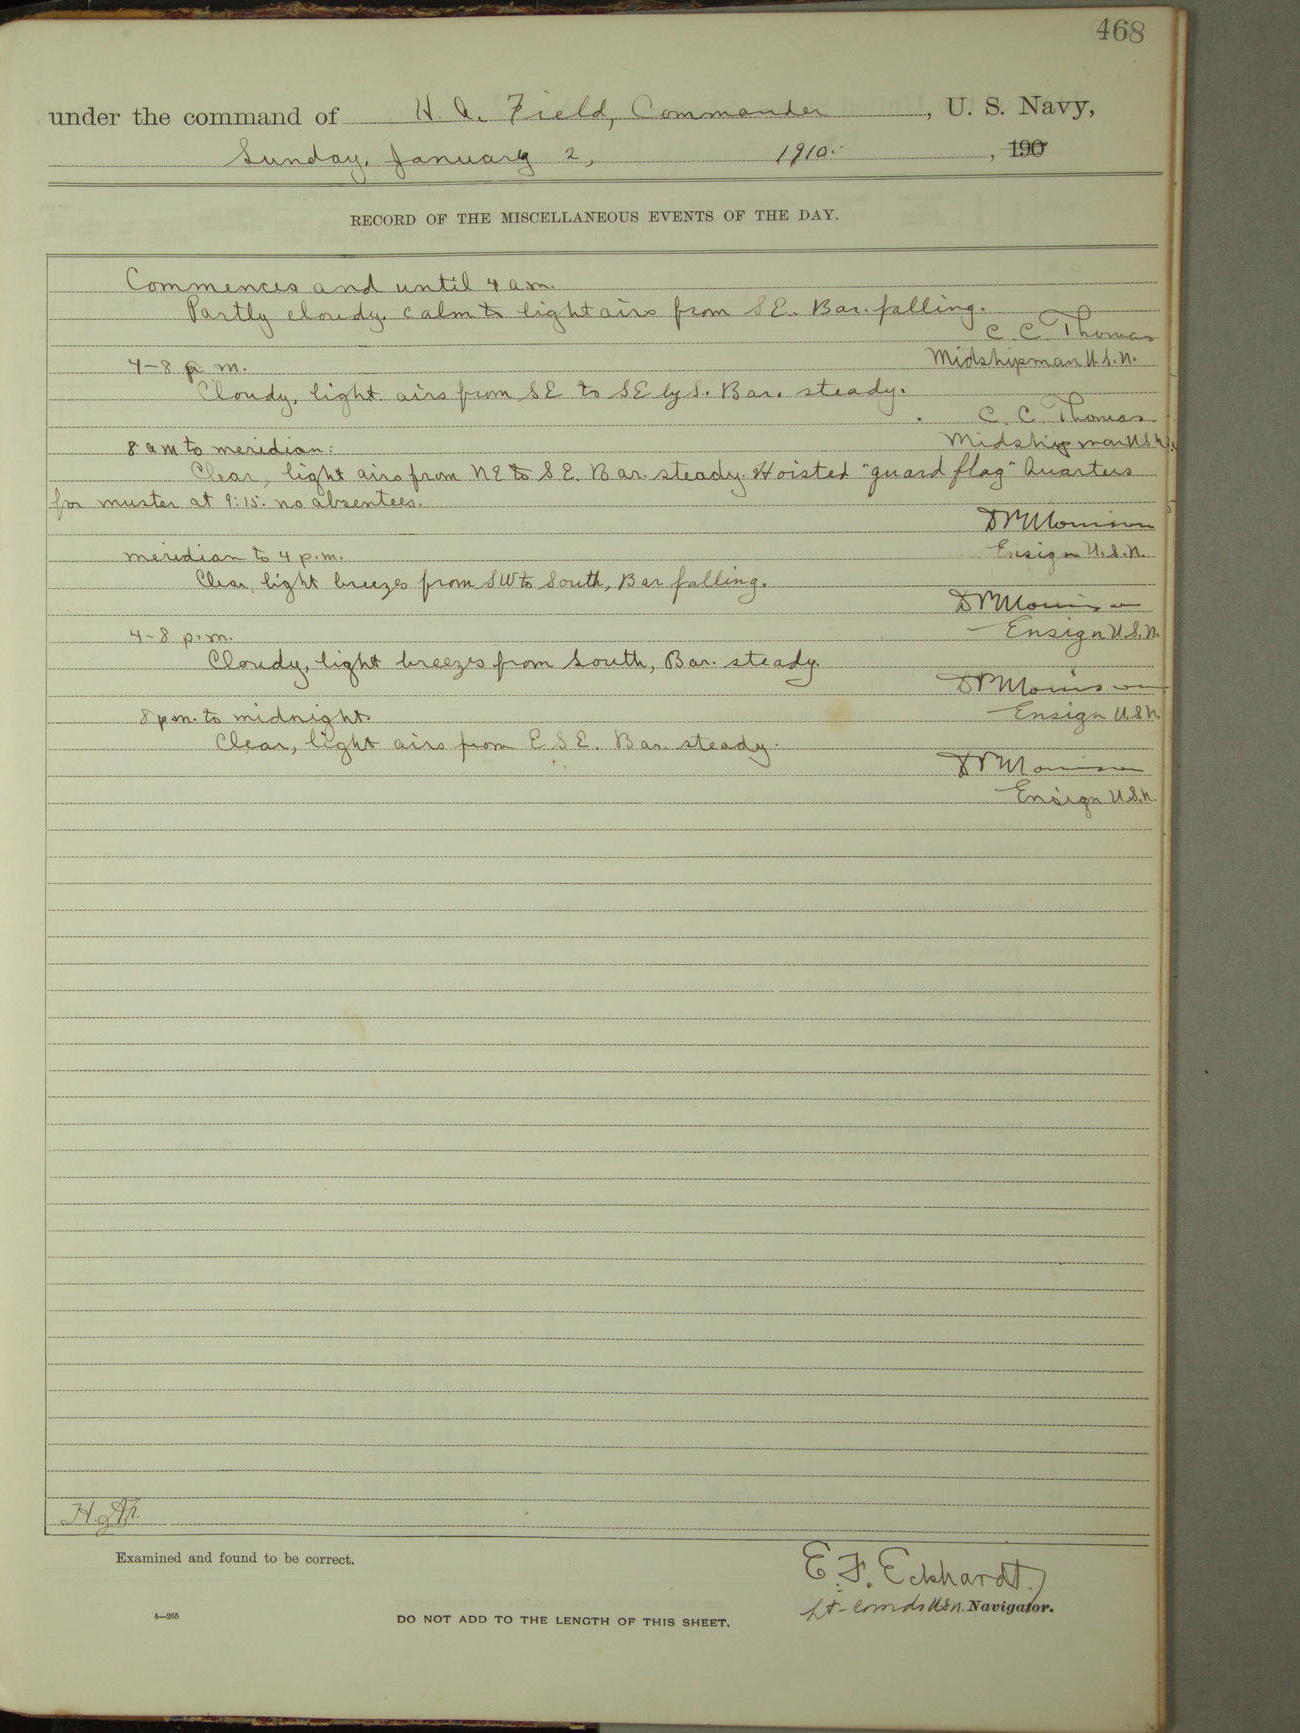 468
under the command of H. A. Field, Commander, U. S. Navy,
Sunday, January 2, 1910. , 190
RECORD OF THE MISCELLANEOUS EVENTS OF THE DAY.
Commences and until 4 a.m.
Partly cloudy, calm to light airs from SE. Bar. falling.
C. C. Thomas
Midshipman U.S.N.
4-8 a m.
Cloudy, light airs from SE to SE by S. Bar. steady.
C. C. Thomas
Midshipman U S N.
8 a m to meridian:
Clear, light airs from NE to SE. Bar. steady. Hoisted "guard flag" Quarters
for muster at 9:15. no absentees.
D P Morrison
Ensign U.S.N.
meridian to 4 p.m.
Clear, light breezes from SW to South, Bar falling.
D P Morrison
Ensign U.S.N.
4-8 p.m.
Cloudy, light breezes from South, Bar. steady.
D P Morrison
Ensign U.S.N.
8 p.m. to midnight.
Clear, light airs from E S E. Bar. steady.
D P Morrison
Ensign U.S.N.
Examined and found to be correct.
E. F. Eckhardt,
Lt-Comdr USN. Navigator.
4—265
DO NOT ADD TO THE LENGTH OF THIS SHEET.